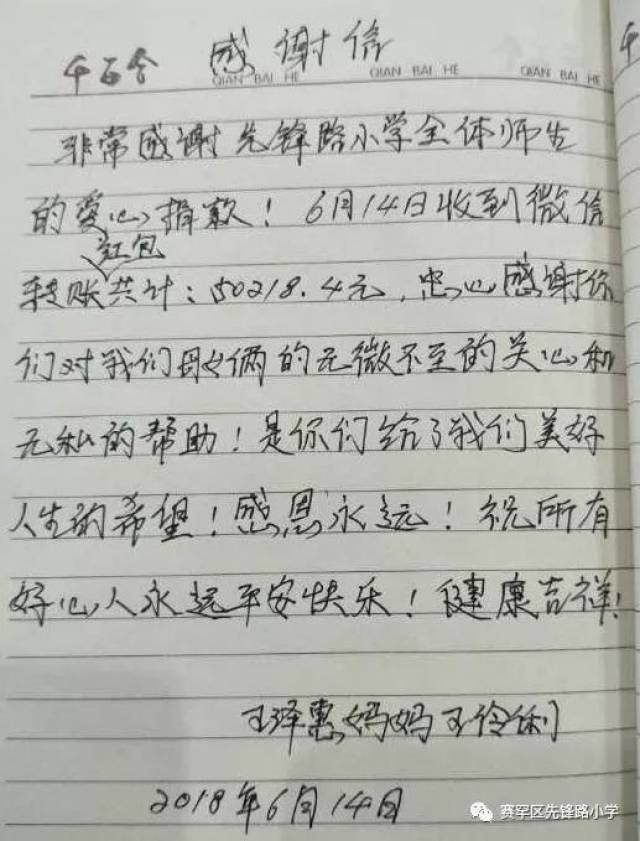 千百合 感谢信
QIAN BAI HE QIAN BAI HE QIAN BAI HE
非常感谢先锋路小学全体师生
的爱心捐款！6月14日收到微信
红包
转账共计：50218.4元，忠心感谢你
们对我们母女俩的无微不至的关心和
无私的帮助！是你们给了我们美好
人生的希望！感恩永远！祝所有
好心人永远平安快乐！健康吉祥！
王泽惠妈妈王伶俐
2018年6月14日
赛罕区先锋路小学